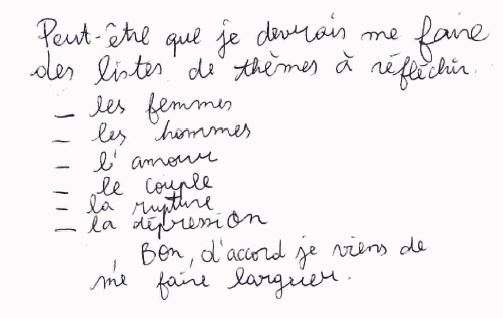 Peut-être que je devrais me faire
des listes de thèmes à réfléchir.
– les femmes
– les hommes
– l'amour
– le couple
– la rupture
– la dépression
Bon, d'accord je viens de
me faire larguer.